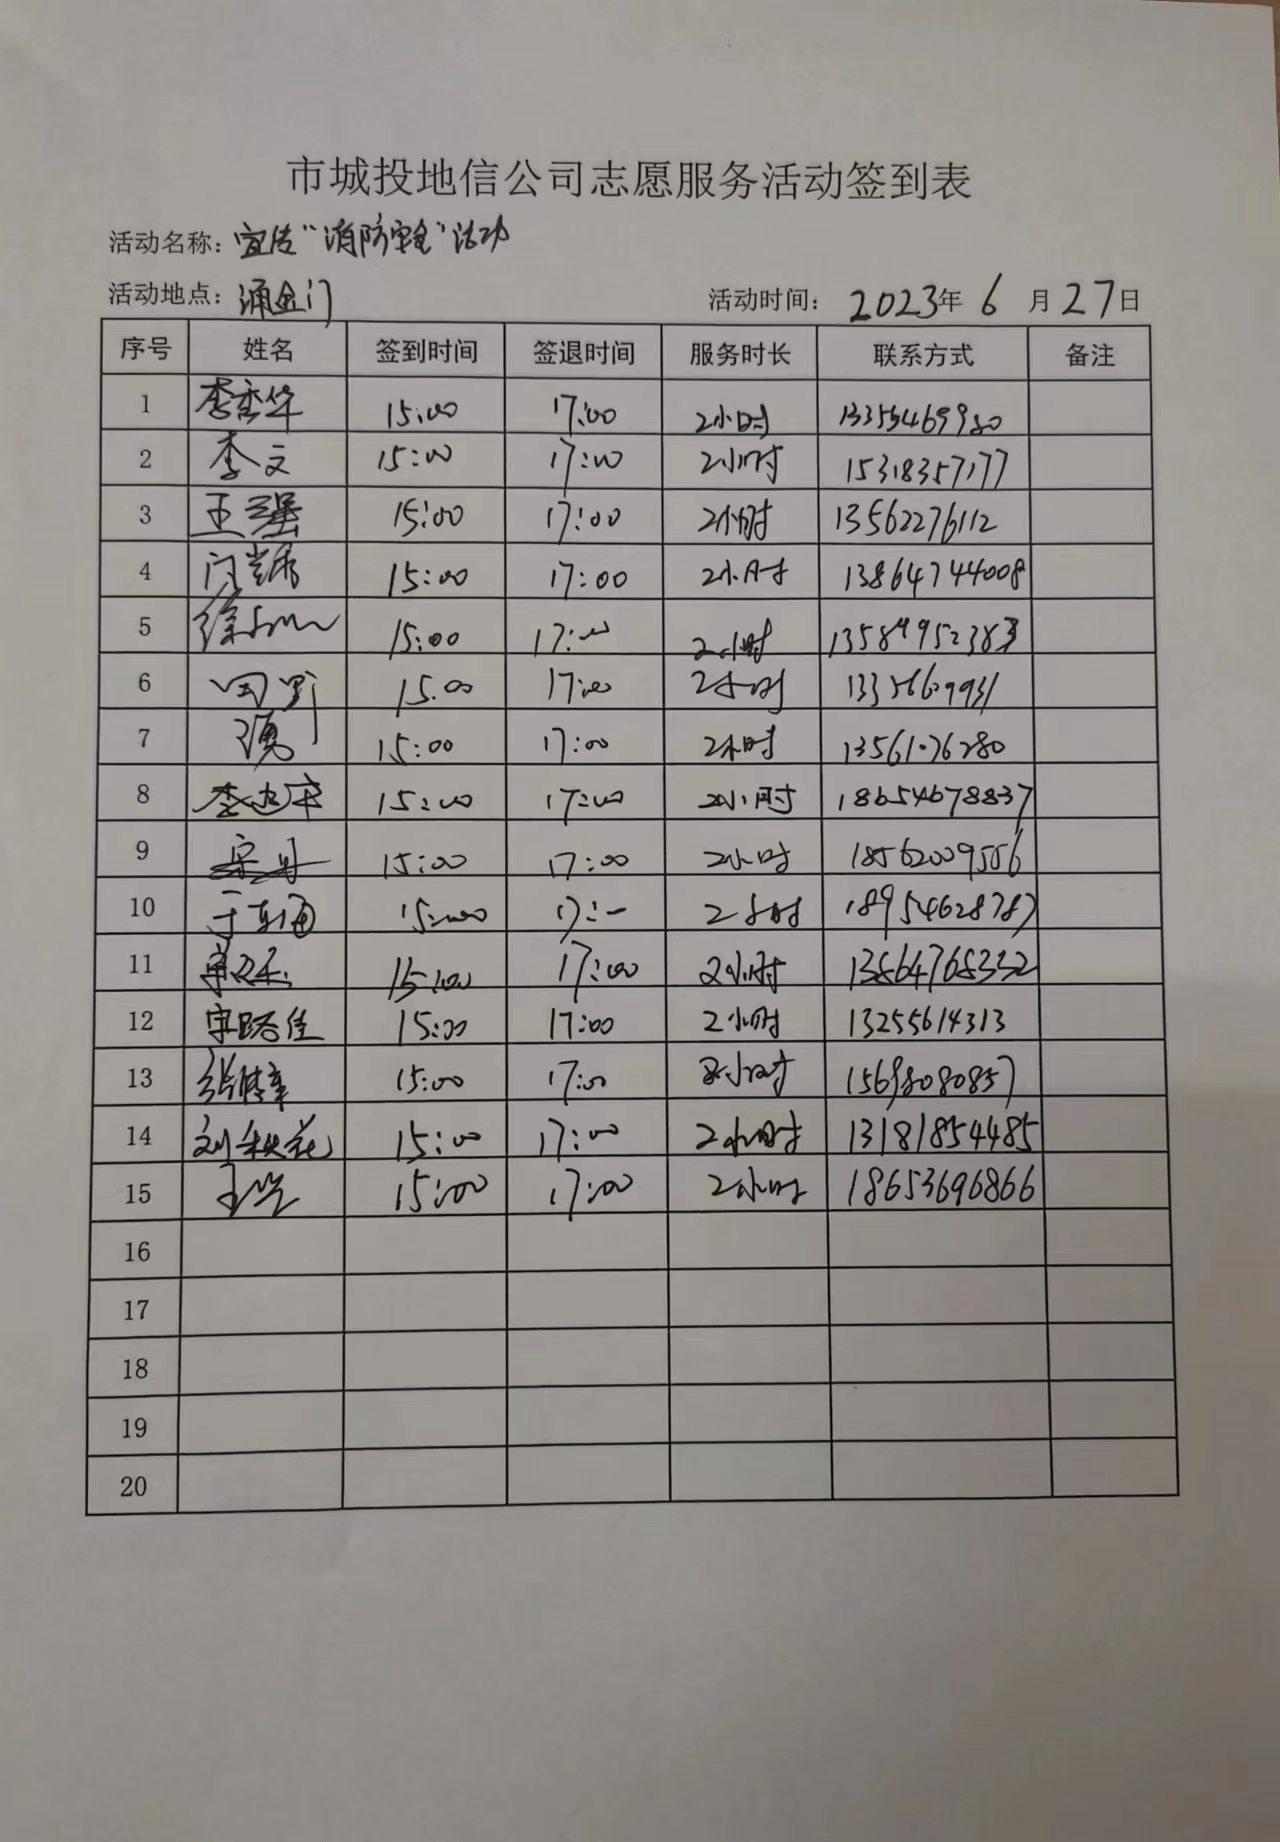 市城投地信公司志愿服务活动签到表
活动名称：宣传"消防安全"活动
活动地点：涌金门 活动时间：2023年6月27日
序号 姓名 签到时间 签退时间 服务时长 联系方式 备注
1 李秀华 15:00 17:00 2小时 13355469980
2 李文 15:00 17:00 2小时 15318357177
3 王强 15:00 17:00 2小时 13562276112
4 15:00 17:00 2小时 13864744008
5 15:00 17:00 2小时 13589952383
6 田野 15:00 17:00 2小时 13356609931
7 15:00 17:00 2小时 13561076280
8 15:00 17:00 2小时 18654678837
9 宋丹 15:00 17:00 2小时 18562009556
10 于东海 15:00 17: 2小时 18954628787
11 15:00 17:00 2小时 13864768332
12 15:00 17:00 2小时 13255614313
13 15:00 17:00 2小时 15698080857
14 刘秋花 15:00 17:00 2小时 13181854485
15 15:00 17:00 2小时 18653696866
16
17
18
19
20